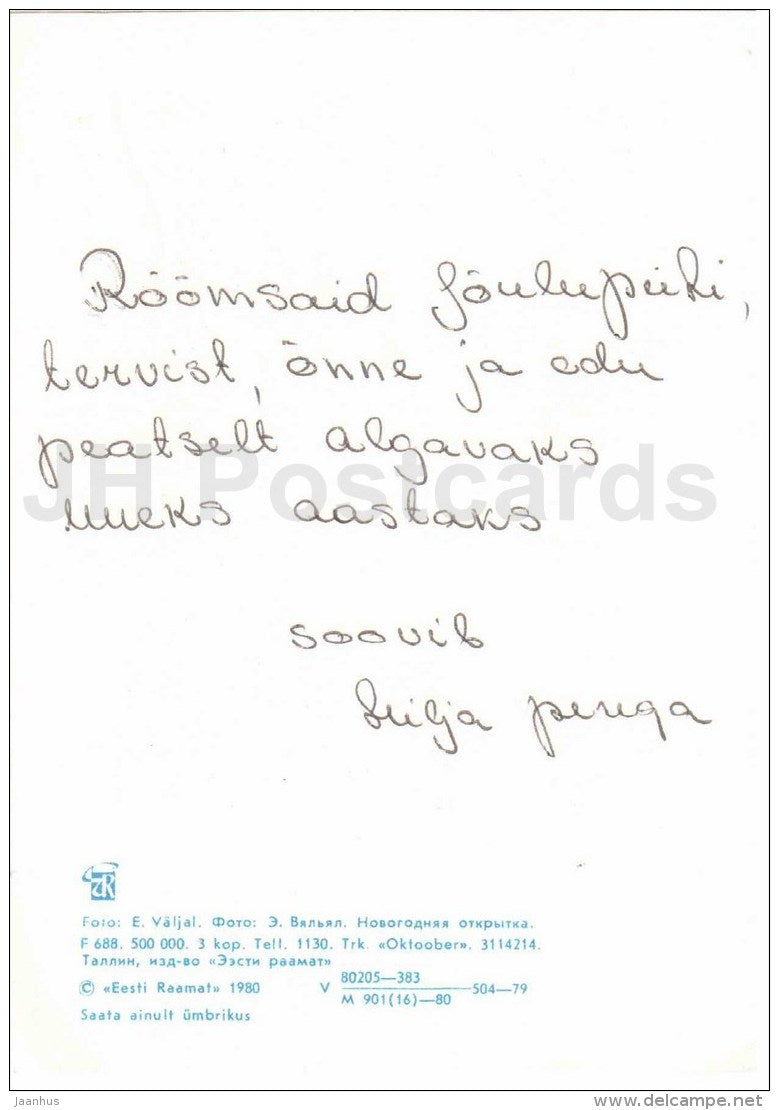 Rõõmsaid jõulupühi,
tervist, õnne ja edu
peatselt algavaks
uueks aastaks
soovib
Silja perega
JH Postcards
Foto: E. Väljal. Фото: Э. Вяльял. Новогодняя открытка.
F 688. 500 000. 3 kop. Tell. 1130. Trk. «Oktoober». 3114214.
Таллин, изд-во «Ээсти раамат»
© «Eesti Raamat» 1980 V 80205—383 504—79
М 901(16)—80
Saata ainult ümbrikus
Jaanhus
www.delcampe.net